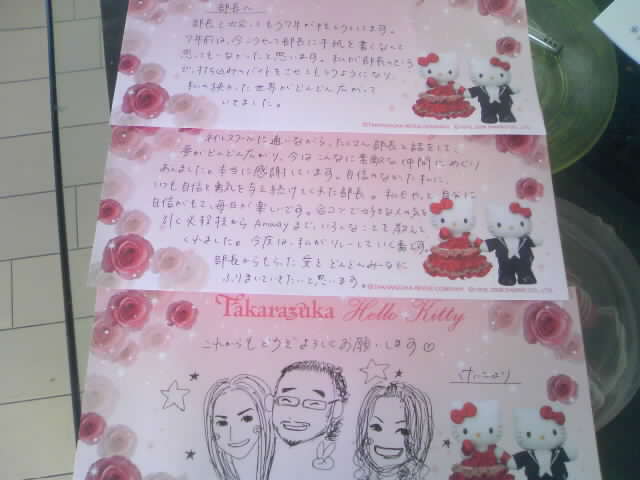 部長へ
部長と出会ってもう7年が経とうとしています。
7年前は、今こうやって部長に手紙を書くなんて
思ってもなかったと思います。私が部長のところ
で、打ち込みのバイトをさせてもらうようになり、
私の狭かった世界がどんどん広がって
いきました。
TAKARAZUKA REVUE COMPANY
ネイルスクールに通いながら、たくさん部長と話をして、
夢がどんどん広がり、今はこんなに素敵な仲間にめぐり
あえました。本当に感謝しています。自信のなかった私に、
いつも自信と勇気を与え続けてくれた部長。私もやっと自分に
自信がもてて、毎日が楽しいです。合コンで好きな人の気を
引く火移技から Amwayまで、いろんなことを教えて
くれました。今度は、私がリレーしていく番です。
部長からもらった愛をどんどんみんなに
ふりまいていきたいと思います。
TAKARAZUKA REVUE COMPANY
Takarazuka Hello Kitty
これからもどうぞよろしくお願いします♡
けいこより